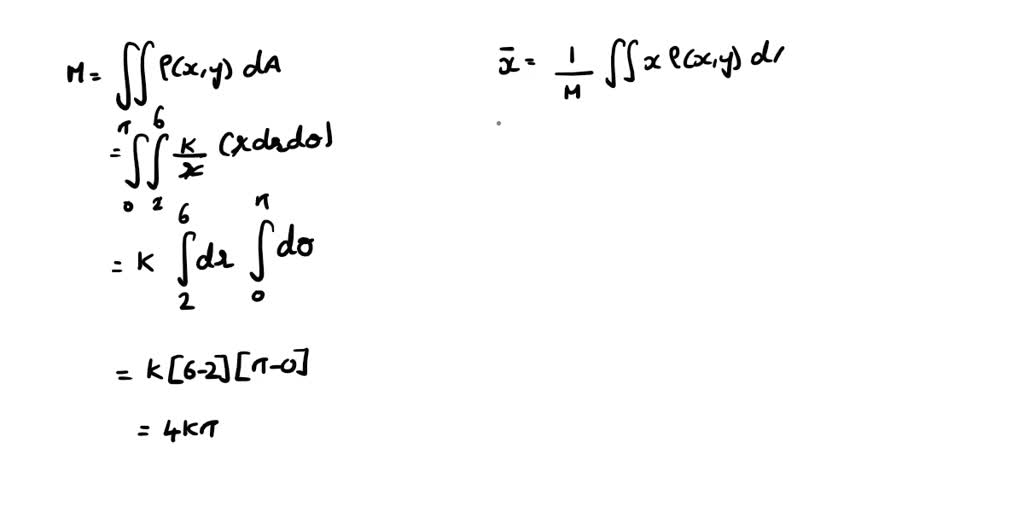 M = ∬ ρ(x,y) dA
= ∫₀^π ∫₂^6 k/r (r dr dθ)
= k ∫₂^6 dr ∫₀^π dθ
= k[6-2][π-0]
= 4kπ
x̄ = 1/M ∬ x ρ(x,y) d